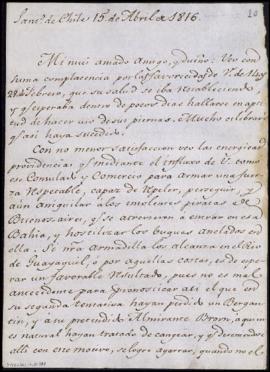 Sant.º de Chile 15 de Abril de 1816.
20
Mi mui amado Amigo, y dueño: Veo con
suma complacencia por las favorecidas de V. de 14 y
28 de Febrero, que su salud se iba restableciendo,
y esperaba dentro de pocos dias hallarse en aptitud
de hacer uso de sus piernas. Mucho celebraré
q.e asi haya sucedido.
Con no menor satisfaccion veo las energicas
providencias q.e mediante el influxo de V. tomó
ese Consulado y Comercio para armar una fuerza
respetable, capaz de repeler, perseguir, y
aun aniquilar a los insolentes piratas de
Buenos aires, q.e se atrevieron á entrar en esa
Bahia, y hostilizar los buques anclados en
ella. Si nra armadilla los alcanza en el rio
de Guayaquil, ó por aquellas costas, es de esperar
un favorable resultado, pues no es mal
antecedente para pronosticar asi el que en
su segunda tentativa hayan perdido un Bergantin,
y á su pretendido Almirante Brown, aquien
es natural hayan tratado de cangear, y deteniendose
alli con ese motivo, se logre agarrar, quando no el